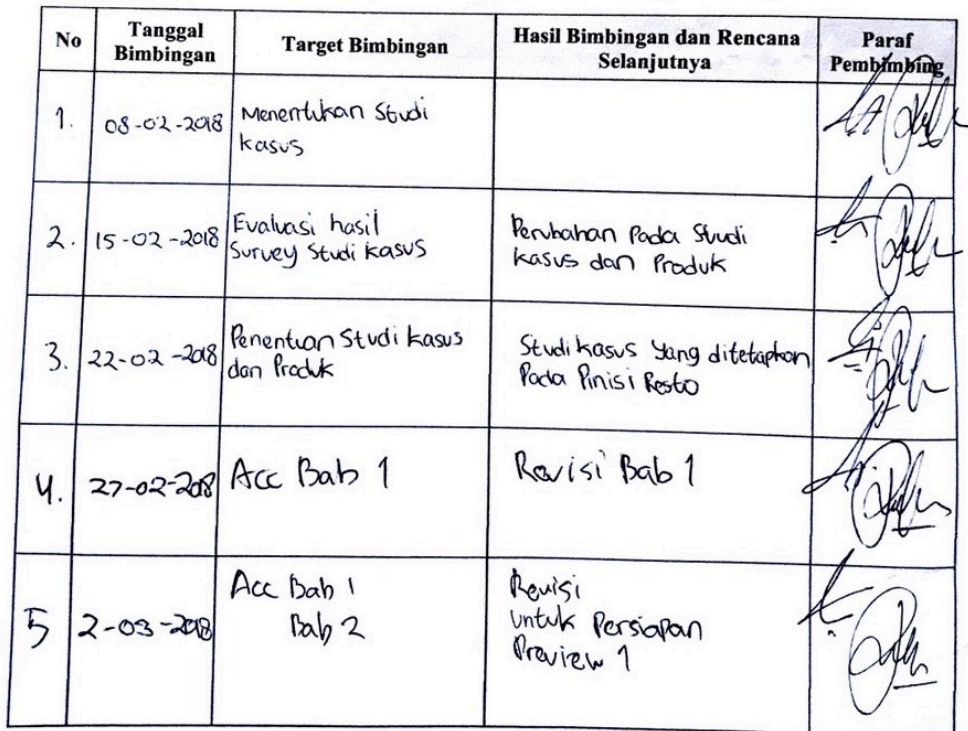 No
Tanggal
Bimbingan
Target Bimbingan
Hasil Bimbingan dan Rencana
Selanjutnya
Paraf
Pembimbing
1.
08-02-2018
Menentukan Studi
kasus
2.
15-02-2018
Evaluasi hasil
Survey Studi kasus
Perubahan Pada Studi
kasus dan Produk
3.
22-02-2018
Penentuan Studi kasus
dan Produk
Studi kasus yang ditetapkan
Pada Pinisi Resto
4.
27-02-2018
Acc Bab 1
Revisi Bab 1
5
2-03-2018
Acc Bab 1
Bab 2
Revisi
untuk Persiapan
Preview 1